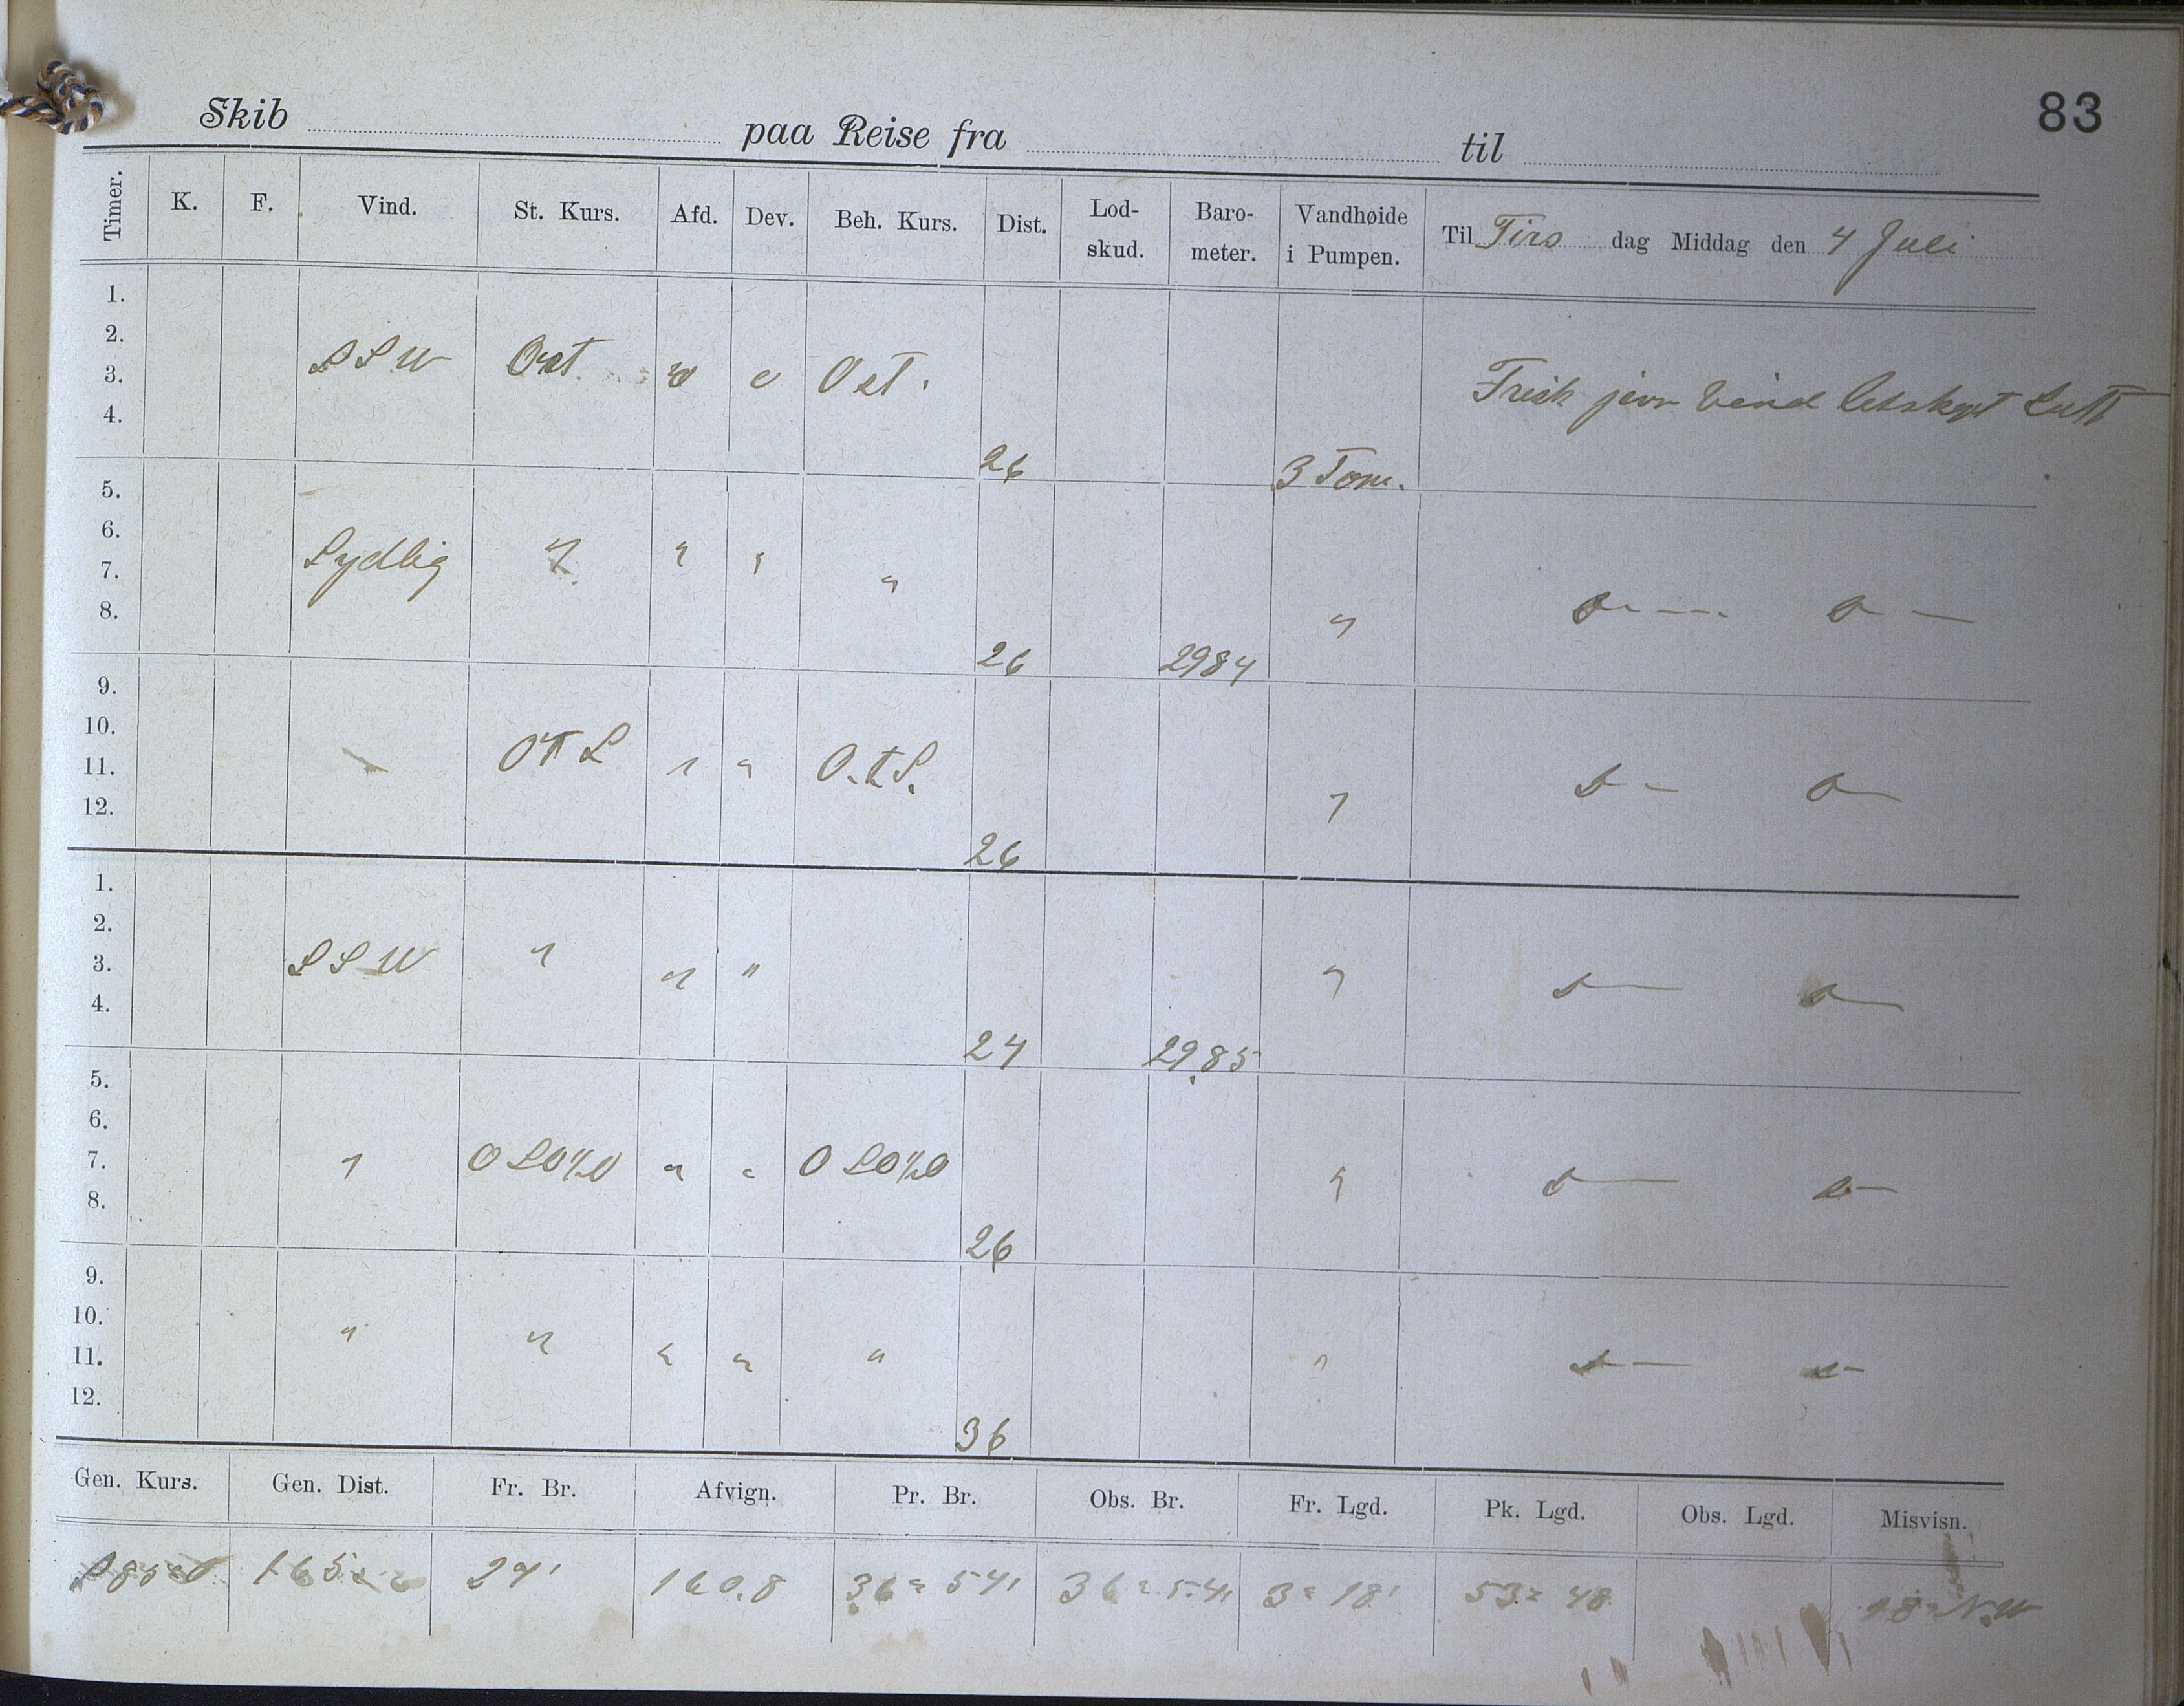 83
Skib paa Reise fra til
Timer. K. F. Vind. St. Kurs. Afd. Dev. Beh. Kurs. Dist. Lod-skud. Baro-meter. Vandhøide i Pumpen. Til Tirs dag Middag den 4 Juli
1.
2.
3. SSW Ost Ost. Frisk jevn Vind letskyet Luft
4. 26 3 Tom.
5.
6.
7. Sydlig " " " "
8. 26 2984 "
9.
10.
11. OTS " " O.t.S.
12. 26 "
1.
2.
3. SSW " " " "
4. 24 29.85
5.
6.
7. " OSO½O " " OSO½O "
8. 26
9.
10.
11. " " " " " "
12. 36
Gen. Kurs. Gen. Dist. Fr. Br. Afvign. Pr. Br. Obs. Br. Fr. Lgd. Pk. Lgd. Obs. Lgd. Misvisn.
160.8 36° 54' 36° 54' 3° 18' 53° 48 18° N.W